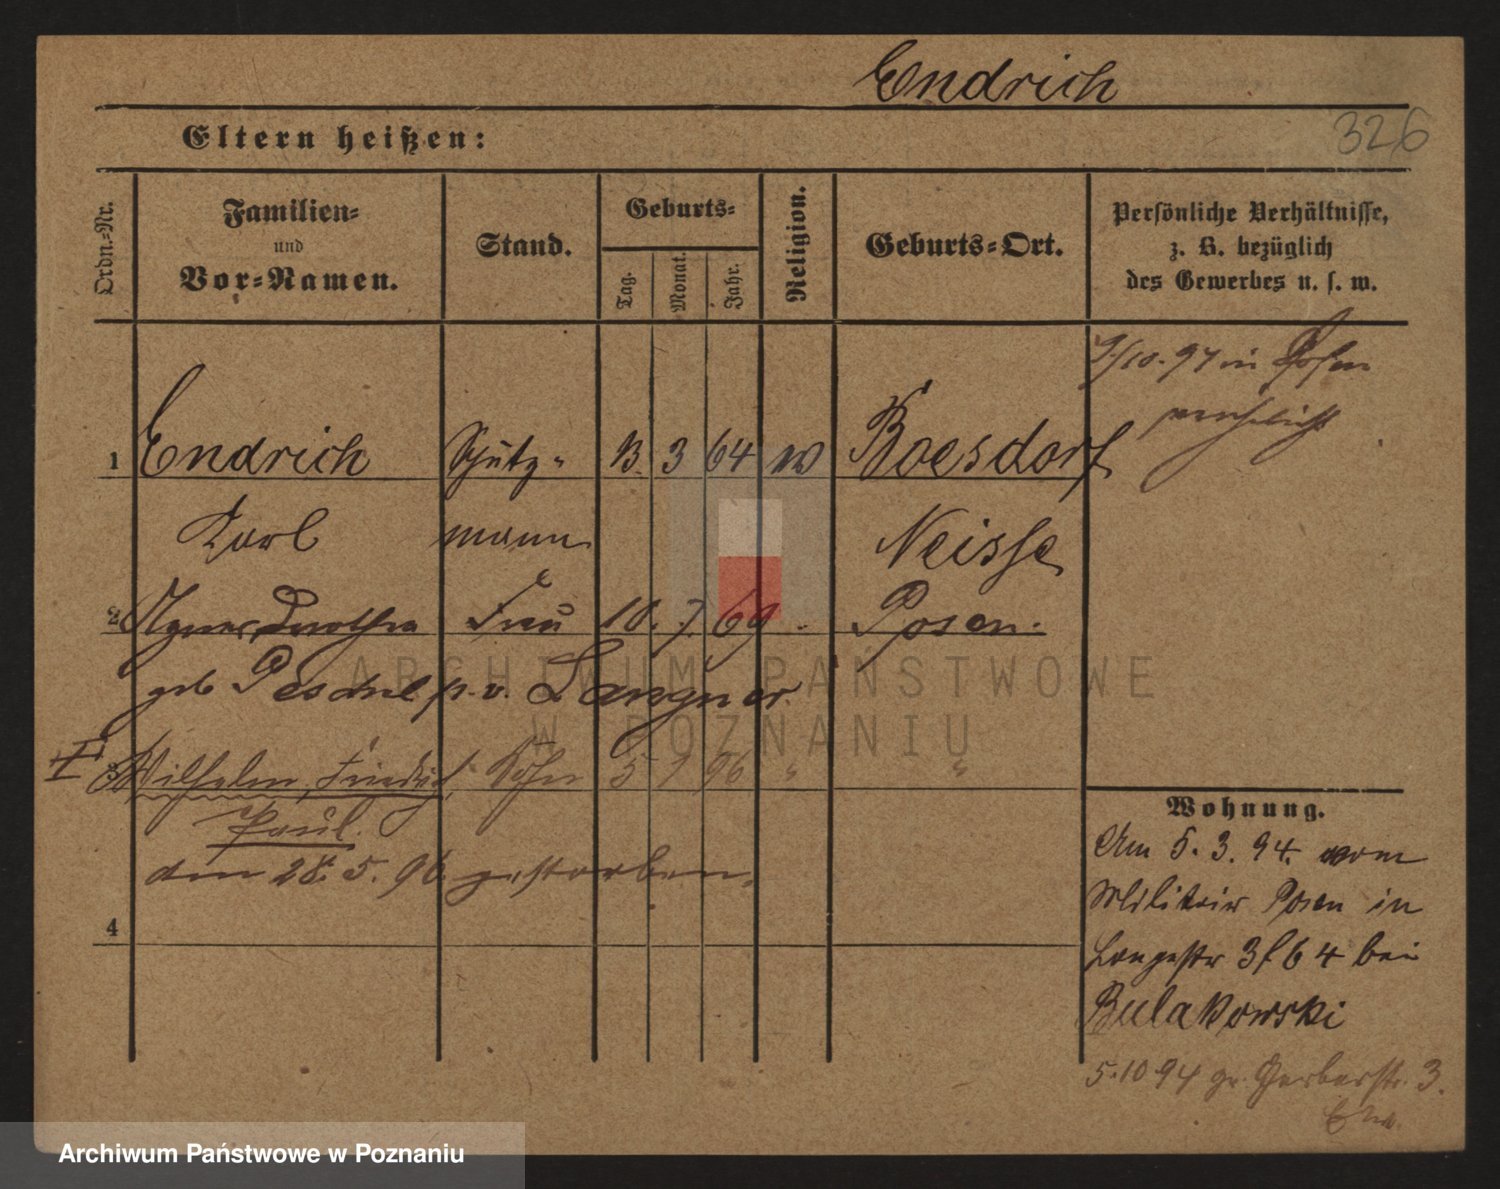 Endrich
326
Eltern heißen:
Ordn.-Nr.
Familien-
und
Vor-Namen.
Stand.
Geburts-
Tag.
Monat.
Jahr.
Religion.
Geburts-Ort.
Persönliche Verhältnisse,
z. B. bezüglich
des Gewerbes u. s. w.
9/10. 94 in Posen
verehelicht
1 Endrich Schutz- 13 3 64 Roesdorf
Karl mann Neisse
2 Agnes, Dorothea Frau 10. 7. 69 Posen.
geb Peschel p. v. Langner.
3 Wilhelm, Friedrich Sohn 5 1 96 " "
Paul.
den 28. 5. 96 gestorben.
4
Wohnung.
Am 5. 3. 94. vom
Militair Posen in
Langestr 3 f 64 bei
Bulakowski
5.10 94 gr. Gerberstr. 3.
ARCHIWUM PAŃSTWOWE
W POZNANIU
Archiwum Państwowe w Poznaniu